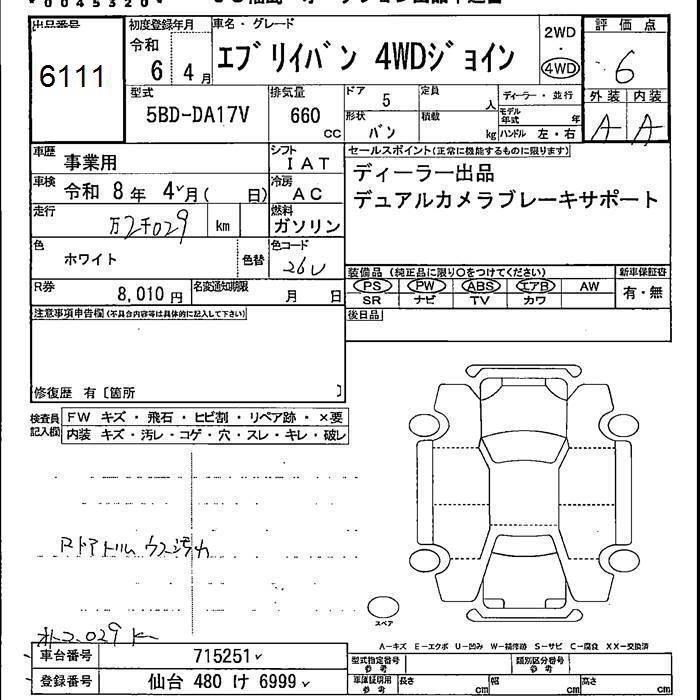 *0045320*
出品番号 6111
初度登録年月 令和 6年 4月
車名・グレード エブリイバン 4WDジョイン
2WD ・ 4WD
評価点 6
外装 A 内装 A
型式 5BD-DA17V
排気量 660 cc
ドア 5
定員 人
形状 バン
積載 kg
ディーラー・並行
モデル年式 年
ハンドル 左・右
車歴 事業用
シフト IAT
車検 令和 8年 4月( 日)
冷房 AC
走行 万2千029 km
燃料 ガソリン
色 ホワイト 色替
色コード 26U
R券 8,010円
名変通知期限 月 日
セールスポイント(正常に機能するものに限ります)
ディーラー出品
デュアルカメラブレーキサポート
装備品(純正品に限り○をつけてください)
新車保証書
PS PW ABS エアB AW
有・無
SR ナビ TV カワ
注意事項申告欄(不具合内容等は具体的に記入して下さい)
後日品
修復歴 有〔箇所 〕
検査員記入欄
FW キズ・飛石・ヒビ割・リペア跡・×要
内装 キズ・汚レ・コゲ・穴・スレ・キレ・破レ
スペア
A-キズ E-エクボ U-凹み W-補修跡 S-サビ C-腐食 XX-交換済
車台番号 715251
型式指定番号 参考
類別区分番号 参考
登録番号 仙台 480 け 6999
車庫証明用 参考 長さ cm 幅 cm 高さ cm